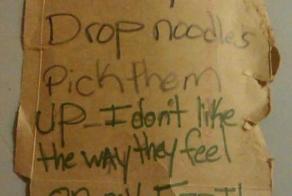 Drop noodles
Pick them
UP_I don't like
the way they feel